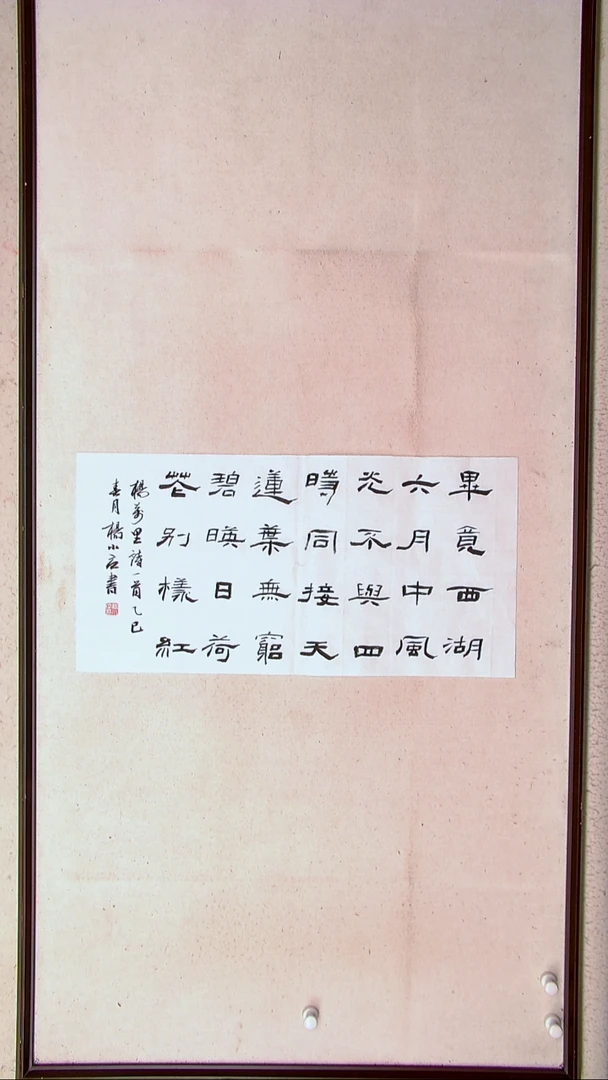 畢竟西湖
六月中風
光不與四
時同接天
蓮葉無窮
碧暎日荷
花别樣紅
楊萬里詩一首乙巳
春月楊小
書